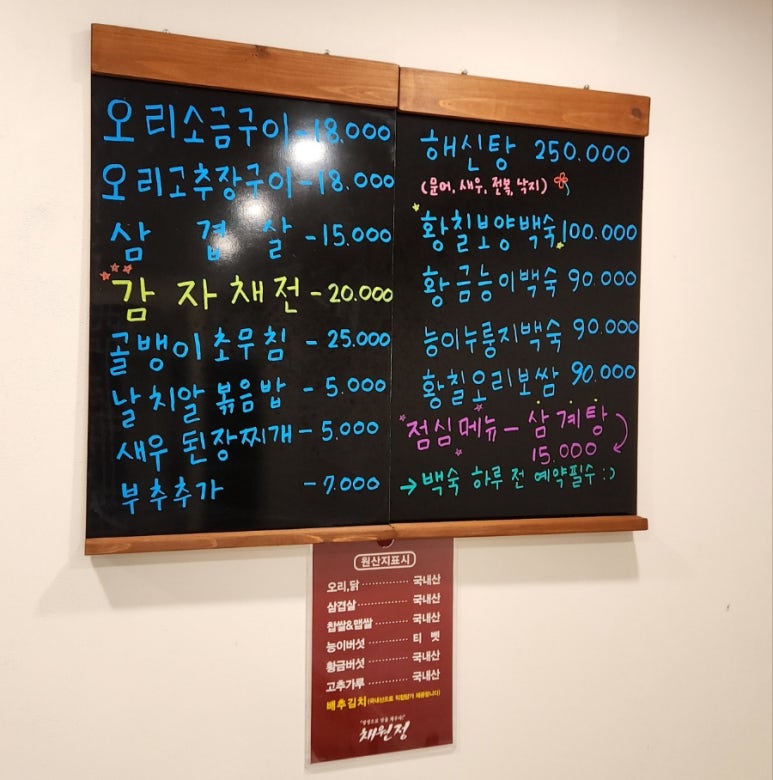 오리소금구이 - 18.000
오리고추장구이 - 18.000
삼 겹 살 - 15.000
감 자 채 전 - 20.000
골뱅이 초무침 - 25.000
날치알 볶음밥 - 5.000
새우 된장찌개 - 5.000
부추추가 - 7.000
해신탕 250.000
(문어, 새우, 전복, 낙지)
황칠보양백숙 100.000
황금능이백숙 90.000
능이누룽지백숙 90.000
황칠오리보쌈 90.000
점심메뉴 - 삼계탕
15.000
→ 백숙 하루 전 예약필수 :)
원산지표시
오리,닭 ............ 국내산
삼겹살 ............ 국내산
찹쌀&맵쌀 ......... 국내산
능이버섯 .......... 티 벳
황금버섯 .......... 국내산
고추가루 .......... 국내산
배추김치 (국내산으로 직접담가 제공합니다)
채원정